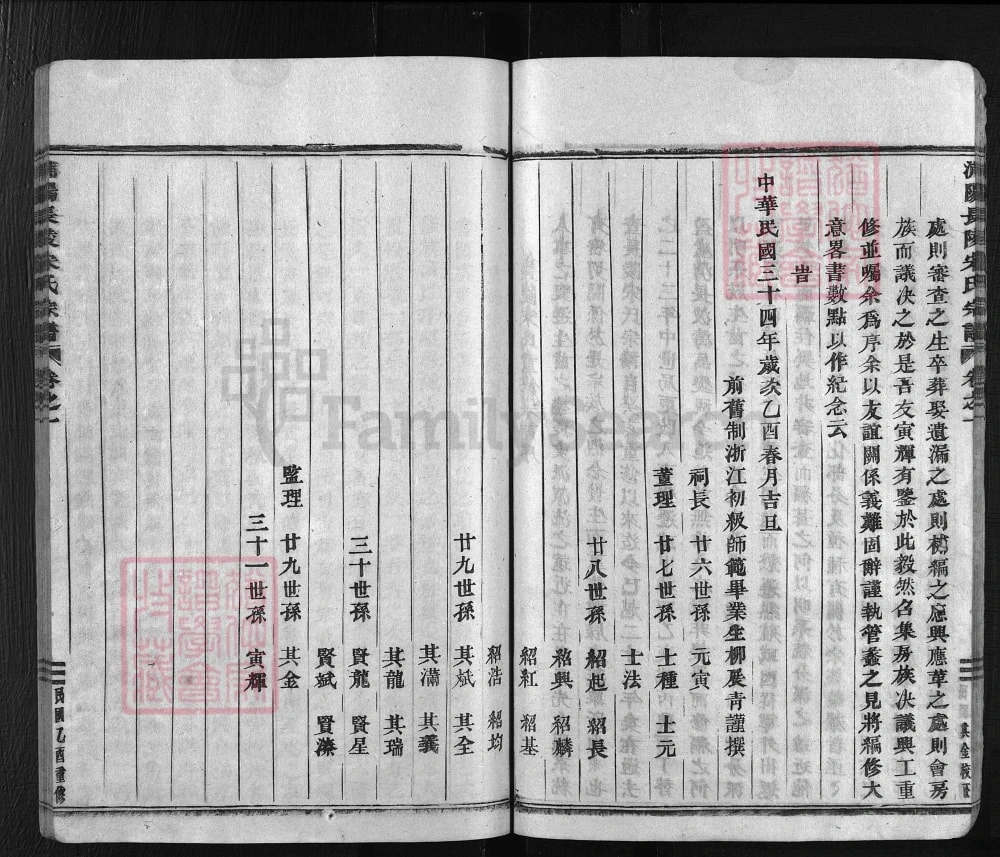 浦陽長陵宋氏宗譜 卷之一
處則審查之生卒葬娶遺漏之處則補編之應興應革之處則會房
族而議決之於是吾友寅輝有鑒於此毅然召集房族決議興工重
修並囑余爲序余以友誼關係義難固辭謹執管蠡之見將編修大
意畧書數點以作紀念云
旹
中華民國三十四年歲次乙酉春月吉旦
前舊制浙江初級師範畢業生柳展青謹撰
祠長 廿六世孫 元寅
董理 廿七世孫 士種 士元
士法
廿八世孫 紹起 紹長
紹興 紹麟
紹紅 紹基
紹浩 紹均
廿九世孫 其斌 其全
其瀟 其義
其龍 其瑞
三十世孫 賢龍 賢星
賢斌 賢濂
監理 廿九世孫 其金
三十一世孫 寅輝
浦陽長陵宋氏宗譜 卷之一
民國乙酉重修
FamilySearch